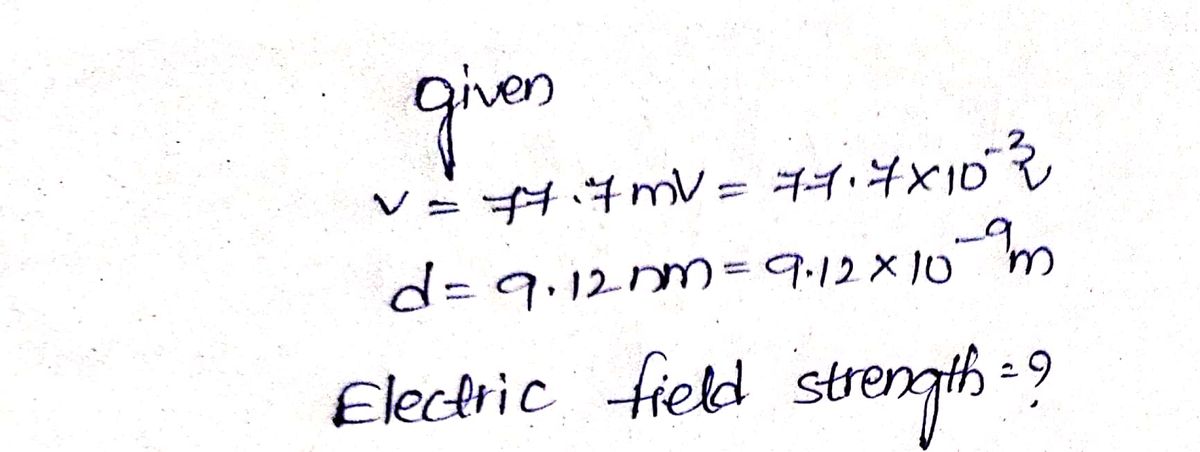 given
v = 77.7 mV = 77.7×10⁻³ v
d = 9.12 nm = 9.12 × 10⁻⁹ m
Electric field strength = ?